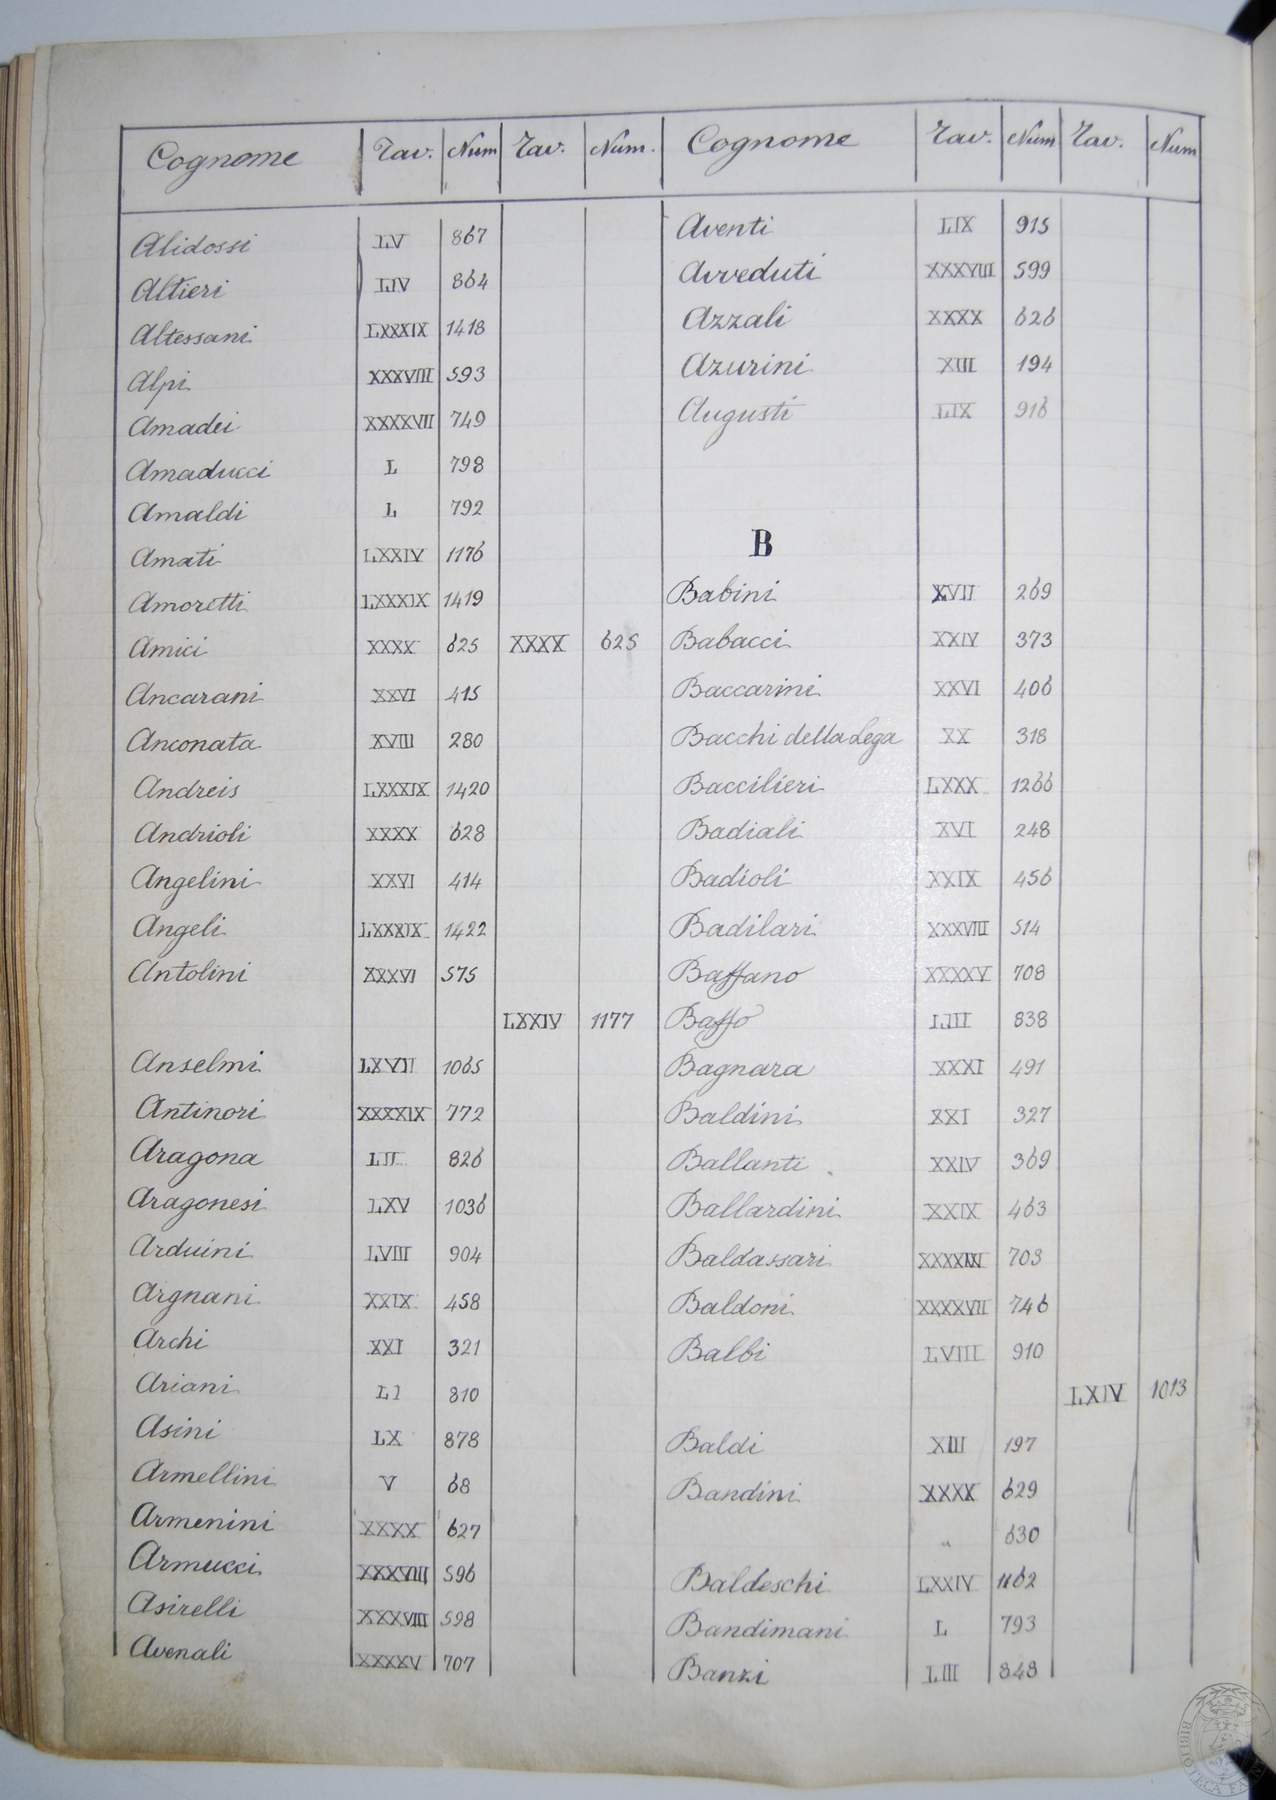 Cognome Tav. Num Tav. Num.
Alidossi LV 867
Altieri LIV 864
Altessani LXXXIX 1418
Alpi XXXVIII 593
Amadei XXXXVII 749
Amaducci L 798
Amaldi L 792
Amati LXXIV 1176
Amoretti LXXXIX 1419
Amici XXXX 625 XXXX 625
Ancarani XXVI 415
Anconata XVIII 280
Andreis LXXXIX 1420
Andrioli XXXX 628
Angelini XXVI 414
Angeli LXXXIX 1422
Antolini XXXVI 575
LXXIV 1177
Anselmi LXVII 1065
Antinori XXXXIX 772
Aragona LII 826
Aragonesi LXV 1036
Arduini LVIII 904
Argnani XXIX 458
Archi XXI 321
Ariani LI 810
Asini LX 878
Armellini V 68
Armenini XXXX 627
Armucci XXXVIII 596
Asirelli XXXVIII 598
Avenali XXXXV 707
Cognome Tav. Num Tav. Num
Aventi LIX 915
Avveduti XXXVIII 599
Azzali XXXX 626
Azurini XIII 194
Augusti LIX 916
B
Babini XVII 269
Babacci XXIV 373
Baccarini XXVI 406
Bacchi della Lega XX 318
Baccilieri LXXX 1266
Badiali XVI 248
Badioli XXIX 456
Badilari XXXVIII 514
Baffano XXXXV 708
Baffo LIII 838
Bagnara XXXI 491
Baldini XXI 327
Ballanti XXIV 369
Ballardini XXIX 463
Baldassari 703
Baldoni XXXXVII 746
Balbi LVIII 910
LXIV 1013
Baldi XIII 197
Bandini XXXX 629
" 630
Baldeschi LXXIV 1162
Bandimani L 793
Banzi LIII 848